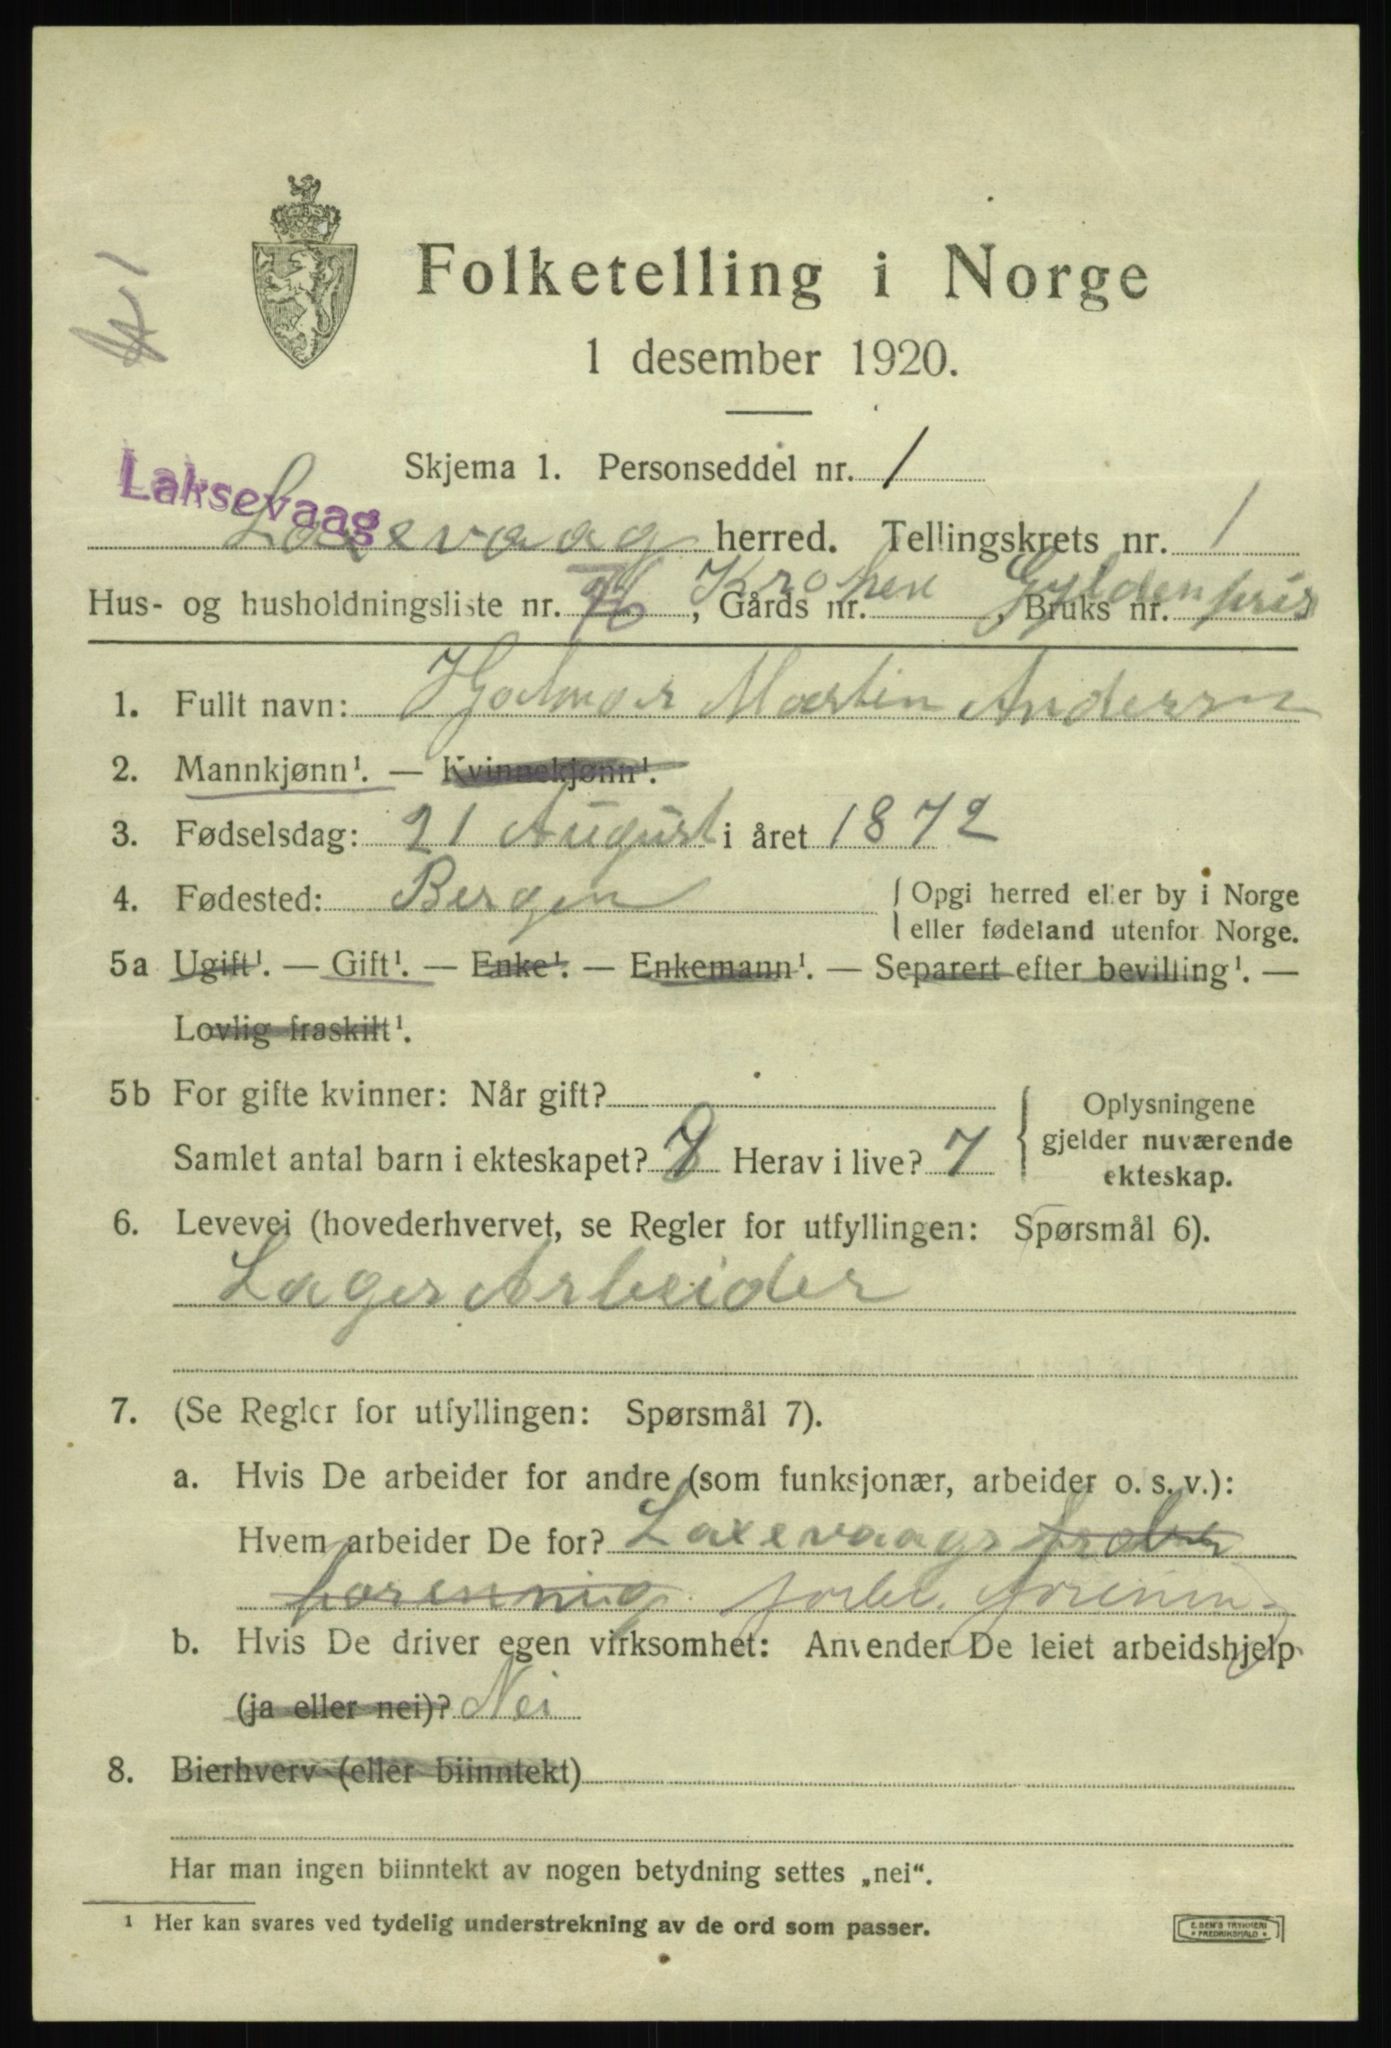 Folketelling i Norge
1 desember 1920.
Skjema 1. Personseddel nr. 1
Laksevaag
Laxevaag herred. Tellingskrets nr. 1
Krohen Gyldenpris
Hus- og husholdningsliste nr. , Gårds nr. , Bruks nr.
1. Fullt navn: Hjalmar Martin Andersen
2. Mannkjønn¹. — Kvinnekjønn¹.
3. Fødselsdag: 21 August i året 1872
4. Fødested: Bergen { Opgi herred eller by i Norge
eller fødeland utenfor Norge.
5a Ugift¹. — Gift¹. — Enke¹. — Enkemann¹. — Separert efter bevilling¹. —
Lovlig fraskilt¹.
5b For gifte kvinner: Når gift?
Samlet antal barn i ekteskapet? Herav i live? 7
{ Oplysningene
gjelder nuværende
ekteskap.
6. Levevei (hovederhvervet, se Regler for utfyllingen: Spørsmål 6).
Lager Arbeider
7. (Se Regler for utfyllingen: Spørsmål 7).
a. Hvis De arbeider for andre (som funksjonær, arbeider o. s. v.):
Hvem arbeider De for? Laxevaags
forennig forbr. forening
b. Hvis De driver egen virksomhet: Anvender De leiet arbeidshjelp
(ja eller nei)? Nei
8. Bierhverv (eller biinntekt)
Har man ingen biinntekt av nogen betydning settes „nei“.
¹ Her kan svares ved tydelig understrekning av de ord som passer.
E. SEM'S TRYKKERI
* FREDRIKSHALD *